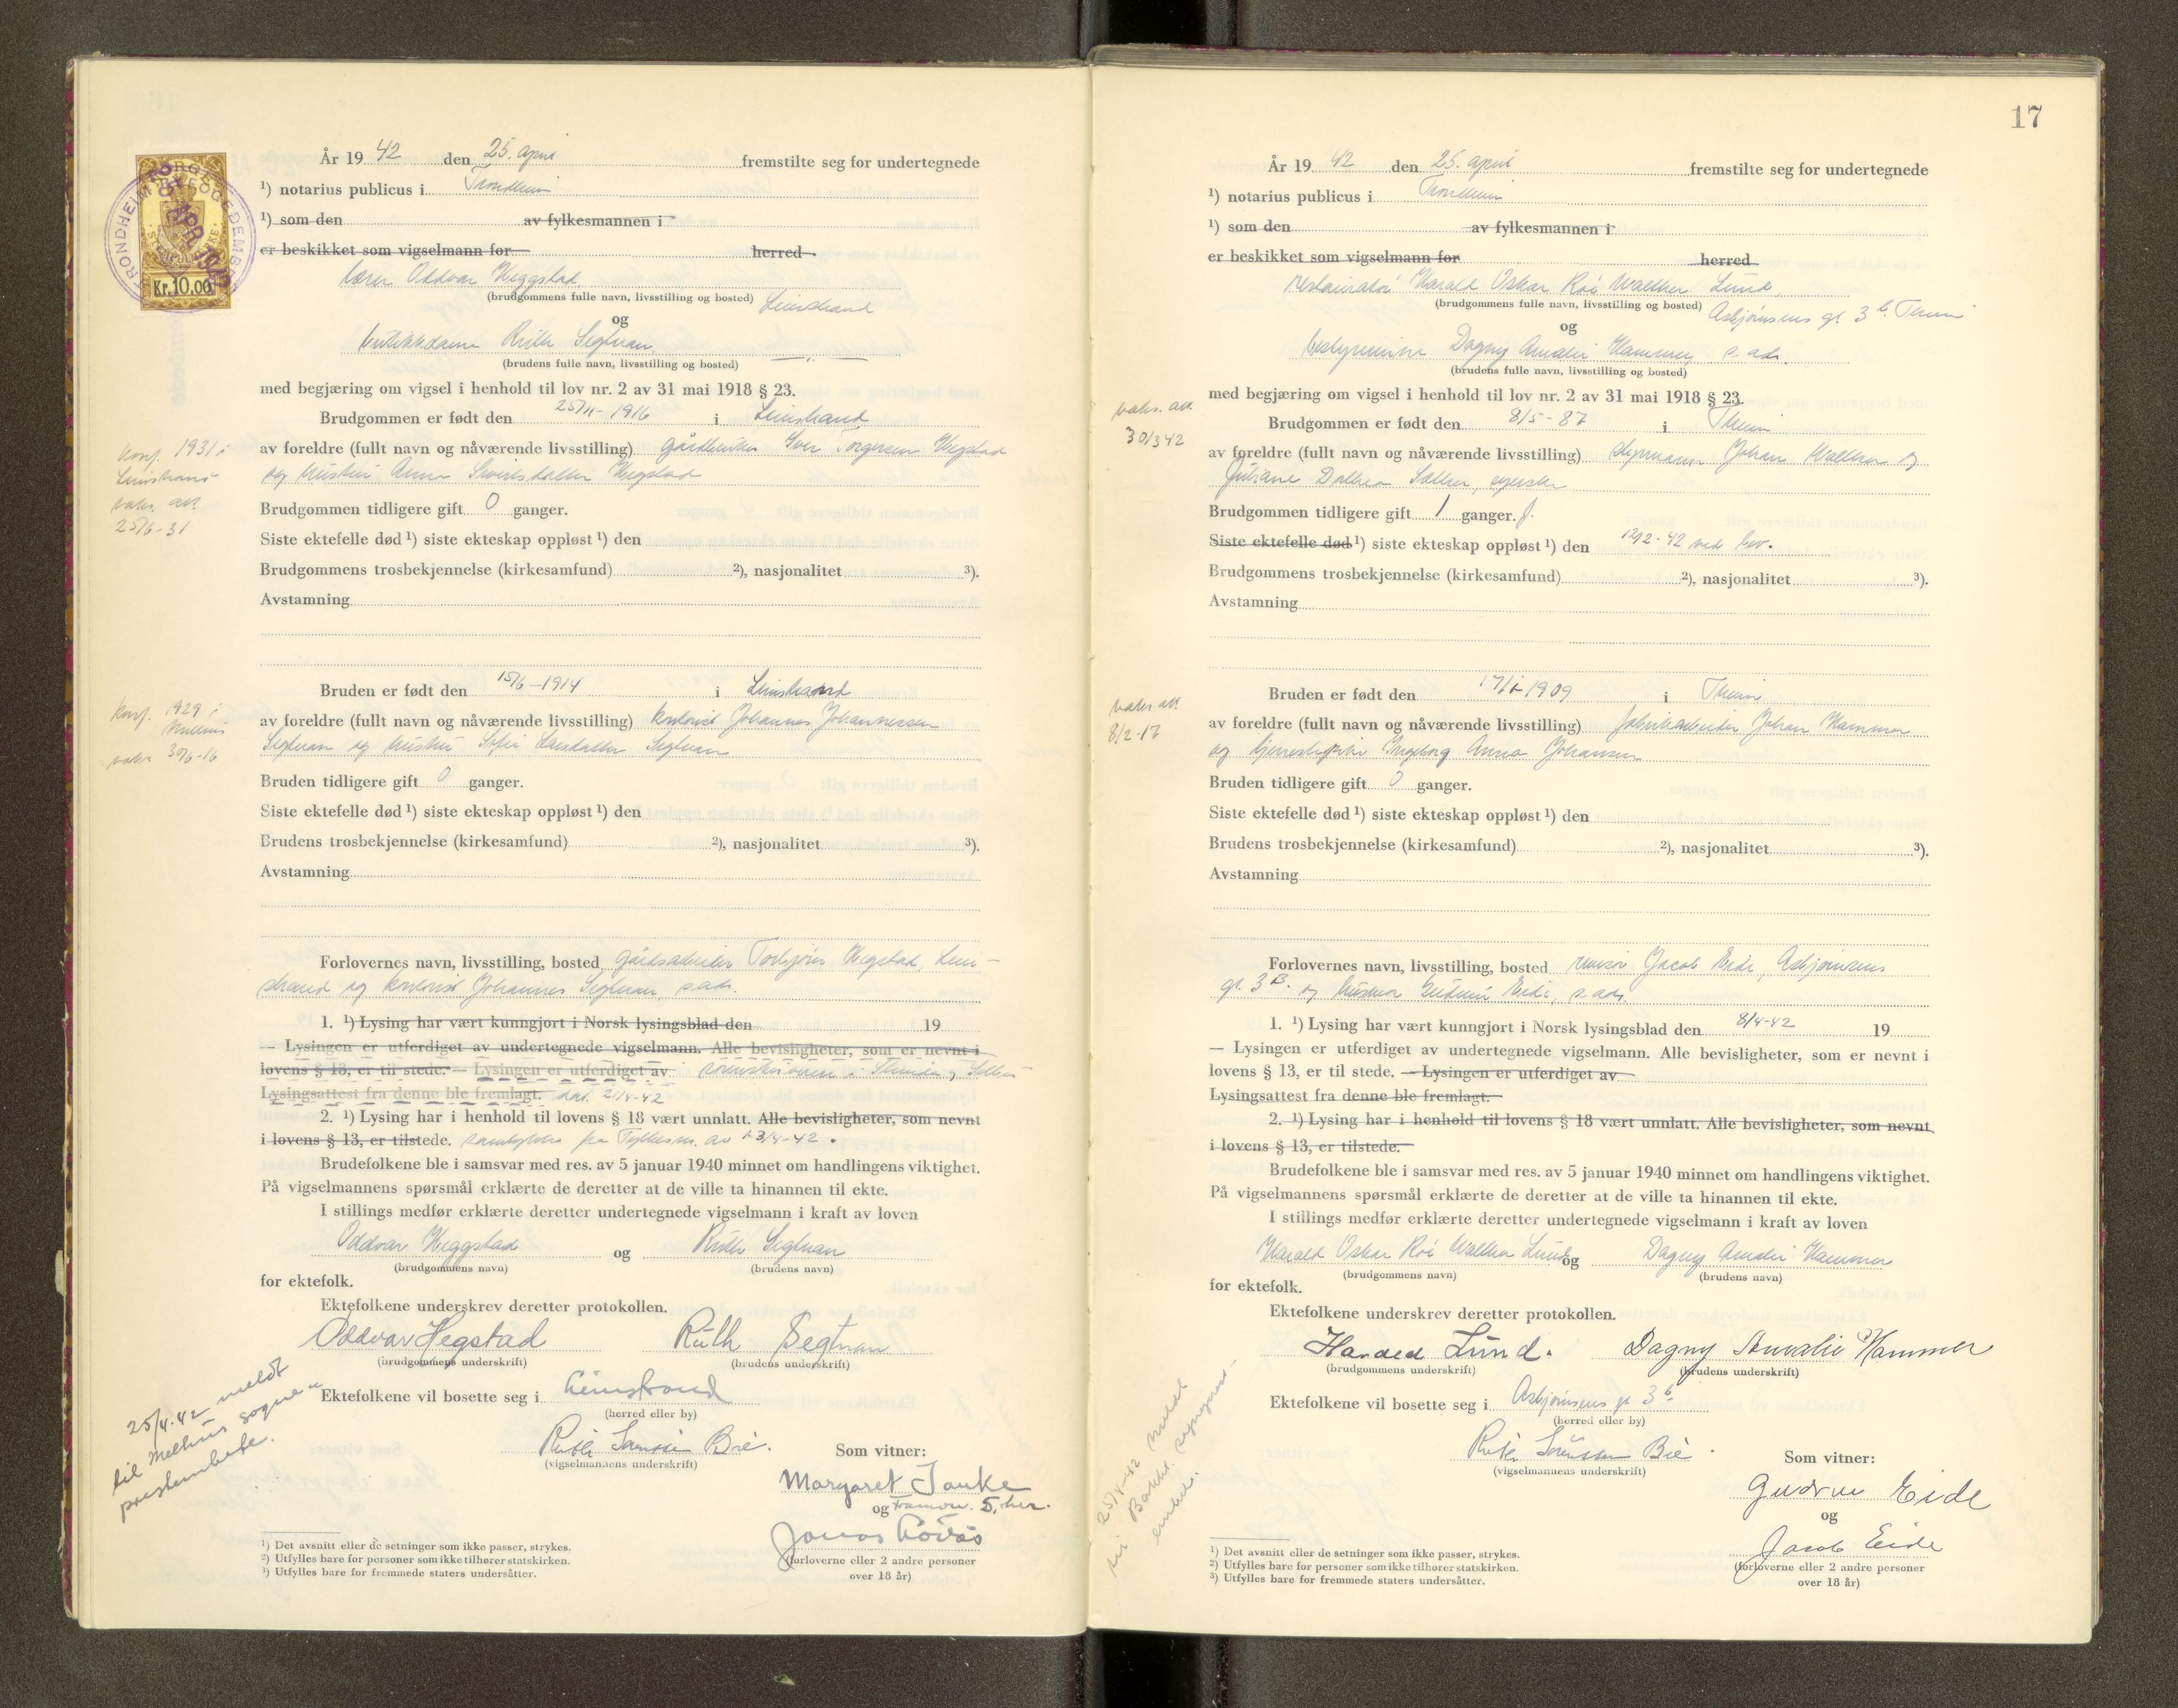 År 19 42 den 25. april fremstilte seg for undertegnede
¹) notarius publicus i Trondheim
¹) som den av fylkesmannen i
er beskikket som vigselmann for herred
TRONDHEIM BORGFOGEDEMBEDE
25 APR. 1942
Kr. 10.00
lærer Oddvar Heggstad
(brudgommens fulle navn, livsstilling og bosted) Leinstrand
og
butikkdame Ruth Segtnan —„—
(brudens fulle navn, livsstilling og bosted)
med begjæring om vigsel i henhold til lov nr. 2 av 31 mai 1918 § 23.
Brudgommen er født den 25/11-1916 i Leinstrand
av foreldre (fullt navn og nåværende livsstilling) gårdbruker Iver Torgersen Hegstad
og hustru Anna Sivertsdatter Hegstad
konf. 1931 i
Leinstrand
vaks. att.
25/6-31
Brudgommen tidligere gift 0 ganger.
Siste ektefelle død ¹) siste ekteskap oppløst ¹) den
Brudgommens trosbekjennelse (kirkesamfund) ²), nasjonalitet ³).
Avstamning
Bruden er født den 15/6-1914 i Leinstrand
av foreldre (fullt navn og nåværende livsstilling) kontorist Johannes Johannessen
Segtnan og hustru Sofie Larsdatter Segtnan
konf. 1929 i
Melhus
vaks. 30/6-16
Bruden tidligere gift 0 ganger.
Siste ektefelle død ¹) siste ekteskap oppløst ¹) den
Brudens trosbekjennelse (kirkesamfund) ²), nasjonalitet ³).
Avstamning
Forlovernes navn, livsstilling, bosted gårdsarbeider Torbjørn Hegstad, Lein-
strand og kontorist Johannes Segtnan, s. ads.
1. ¹) Lysing har vært kunngjort i Norsk lysingsblad den 19
— Lysingen er utferdiget av undertegnede vigselmann. Alle bevisligheter, som er nevnt i
lovens § 13, er til stede. — Lysingen er utferdiget av sorenskriveren i Strinda og Selbu
Lysingsattest fra denne ble fremlagt. dat. 21/4-42
2. ¹) Lysing har i henhold til lovens § 18 vært unnlatt. Alle bevisligheter, som nevnt
i lovens § 13, er tilstede. samtykke fra Fylkesm. av 23/4-42.
Brudefolkene ble i samsvar med res. av 5 januar 1940 minnet om handlingens viktighet.
På vigselmannens spørsmål erklærte de deretter at de ville ta hinannen til ekte.
I stillings medfør erklærte deretter undertegnede vigselmann i kraft av loven
Oddvar Heggstad og Ruth Segtnan
(brudgommens navn) (brudens navn)
for ektefolk.
Ektefolkene underskrev deretter protokollen.
Oddvar Hegstad Ruth Segtnan
(brudgommens underskrift) (brudens underskrift)
Ektefolkene vil bosette seg i Leinstrand
(herred eller by)
25/4-42 meldt
til Melhus sogne-
prestembete.
(vigselmannens underskrift)
Som vitner:
Margaret Tanke
og
Jonas
(forloverne eller 2 andre personer
over 18 år)
¹) Det avsnitt eller de setninger som ikke passer, strykes.
²) Utfylles bare for personer som ikke tilhører statskirken.
³) Utfylles bare for fremmede staters undersåtter.
17
År 19 42 den 25. april fremstilte seg for undertegnede
¹) notarius publicus i Trondheim
¹) som den av fylkesmannen i
er beskikket som vigselmann for herred
restauratør Harald Oskar Roi Walther Lund,
(brudgommens fulle navn, livsstilling og bosted) Asbjørnsens gt. 3 b. Theim
og
bestyrerinne Dagny Amalie Hammer, s. ads.
(brudens fulle navn, livsstilling og bosted)
med begjæring om vigsel i henhold til lov nr. 2 av 31 mai 1918 § 23.
Brudgommen er født den 8/5-87 i Theim
vaks. att.
30/3 42
av foreldre (fullt navn og nåværende livsstilling) styrmann Johan Walther og
Juliane Dorthea Sæther, syerske
Brudgommen tidligere gift 1 ganger. f.
Siste ektefelle død ¹) siste ekteskap oppløst ¹) den 12/2-42 ved bev.
Brudgommens trosbekjennelse (kirkesamfund) ²), nasjonalitet ³).
Avstamning
Bruden er født den 17/1-1909 i Theim
vaks. att.
8/2-17
av foreldre (fullt navn og nåværende livsstilling) fabrikkarbeider Johan Hammer
og tjenestepike Ingeborg Anna Johansen
Bruden tidligere gift 0 ganger.
Siste ektefelle død ¹) siste ekteskap oppløst ¹) den
Brudens trosbekjennelse (kirkesamfund) ²), nasjonalitet ³).
Avstamning
Forlovernes navn, livsstilling, bosted revisor Jacob Eide, Asbjørnsens
gt. 3 B. og husmor Gudrun Eide, s. ads.
1. ¹) Lysing har vært kunngjort i Norsk lysingsblad den 8/4-42 19
— Lysingen er utferdiget av undertegnede vigselmann. Alle bevisligheter, som er nevnt i
lovens § 13, er til stede. — Lysingen er utferdiget av
Lysingsattest fra denne ble fremlagt.
2. ¹) Lysing har i henhold til lovens § 18 vært unnlatt. Alle bevisligheter, som nevnt
i lovens § 13, er tilstede.
Brudefolkene ble i samsvar med res. av 5 januar 1940 minnet om handlingens viktighet.
På vigselmannens spørsmål erklærte de deretter at de ville ta hinannen til ekte.
I stillings medfør erklærte deretter undertegnede vigselmann i kraft av loven
Harald Oskar Roi Walther Lund og Dagny Amalie Hammer
(brudgommens navn) (brudens navn)
for ektefolk.
Ektefolkene underskrev deretter protokollen.
Harald Lund. Dagny Amalie Hammer
(brudgommens underskrift) (brudens underskrift)
Ektefolkene vil bosette seg i Asbjørnsens gt 3 b.
(herred eller by)
25/4-42 meldt
til Bakke sogneprest
embete.
(vigselmannens underskrift)
Som vitner:
Gudrun Eide
og
Jacob Eide
(forloverne eller 2 andre personer
over 18 år)
¹) Det avsnitt eller de setninger som ikke passer, strykes.
²) Utfylles bare for personer som ikke tilhører statskirken.
³) Utfylles bare for fremmede staters undersåtter.